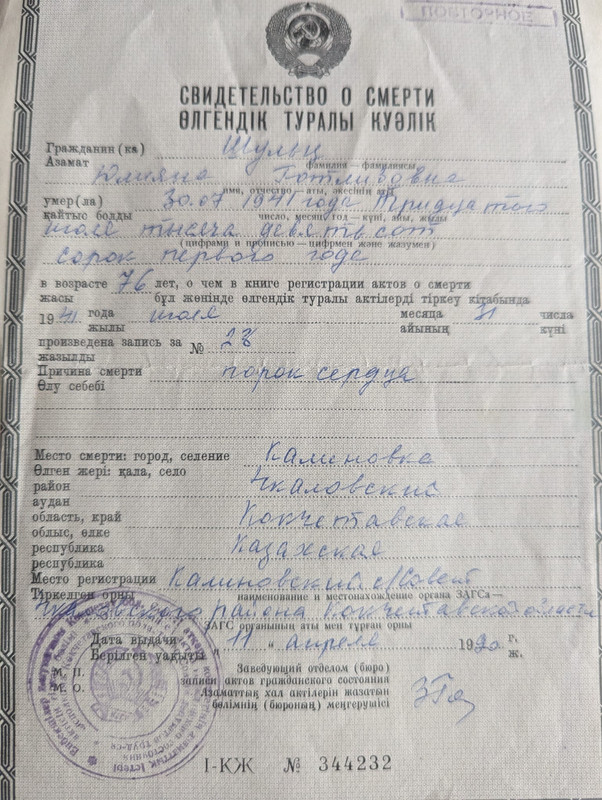 ПОВТОРНОЕ
СВИДЕТЕЛЬСТВО О СМЕРТИ
ӨЛГЕНДІК ТУРАЛЫ КУӘЛІК
Гражданин(ка) Шульц
Азамат фамилия—фамилиясы
Юлияна Готлибовна
имя, отчество—аты, әкесінің аты
умер(ла) 30.07 1941 года Тридцатого
қайтыс болды число, месяц, год—күні, айы, жылы
июля тысяча девятьсот
(цифрами и прописью—цифрмен және жазумен)
сорок первого года
в возрасте 76 лет, о чем в книге регистрации актов о смерти
жасы бұл жөнінде өлгендік туралы актілерді тіркеу кітабында
1941 года июля месяца 31 числа
жылы айының күні
произведена запись за № 28
жазылды
Причина смерти порок сердца
Өлу себебі
Место смерти: город, селение Калиновка
Өлген жері: қала, село
район Чкаловский
аудан
область, край Кокчетавская
облыс, өлке
республика Казахская
республика
Место регистрации Калиновский с/Совет
Тіркелген орны наименование и местонахождение органа ЗАГСа—
Чкаловского района Кокчетавской области
ЗАГС органының аты мен тұрған орны
Дата выдачи „ 11 “ апреля 1990 г.
Берілген уақыты ж.
М. П. Заведующий отделом (бюро)
М. О. записи актов гражданского состояния
Азаматтық хал актілерін жазатын
бөлімнің (бюроның) меңгерушісі
I-КЖ № 344232